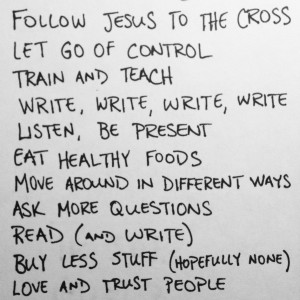 FOLLOW JESUS TO THE CROSS
LET GO OF CONTROL
TRAIN AND TEACH
WRITE, WRITE, WRITE, WRITE
LISTEN, BE PRESENT
EAT HEALTHY FOODS
MOVE AROUND IN DIFFERENT WAYS
ASK MORE QUESTIONS
READ (AND WRITE)
BUY LESS STUFF (HOPEFULLY NONE)
LOVE AND TRUST PEOPLE